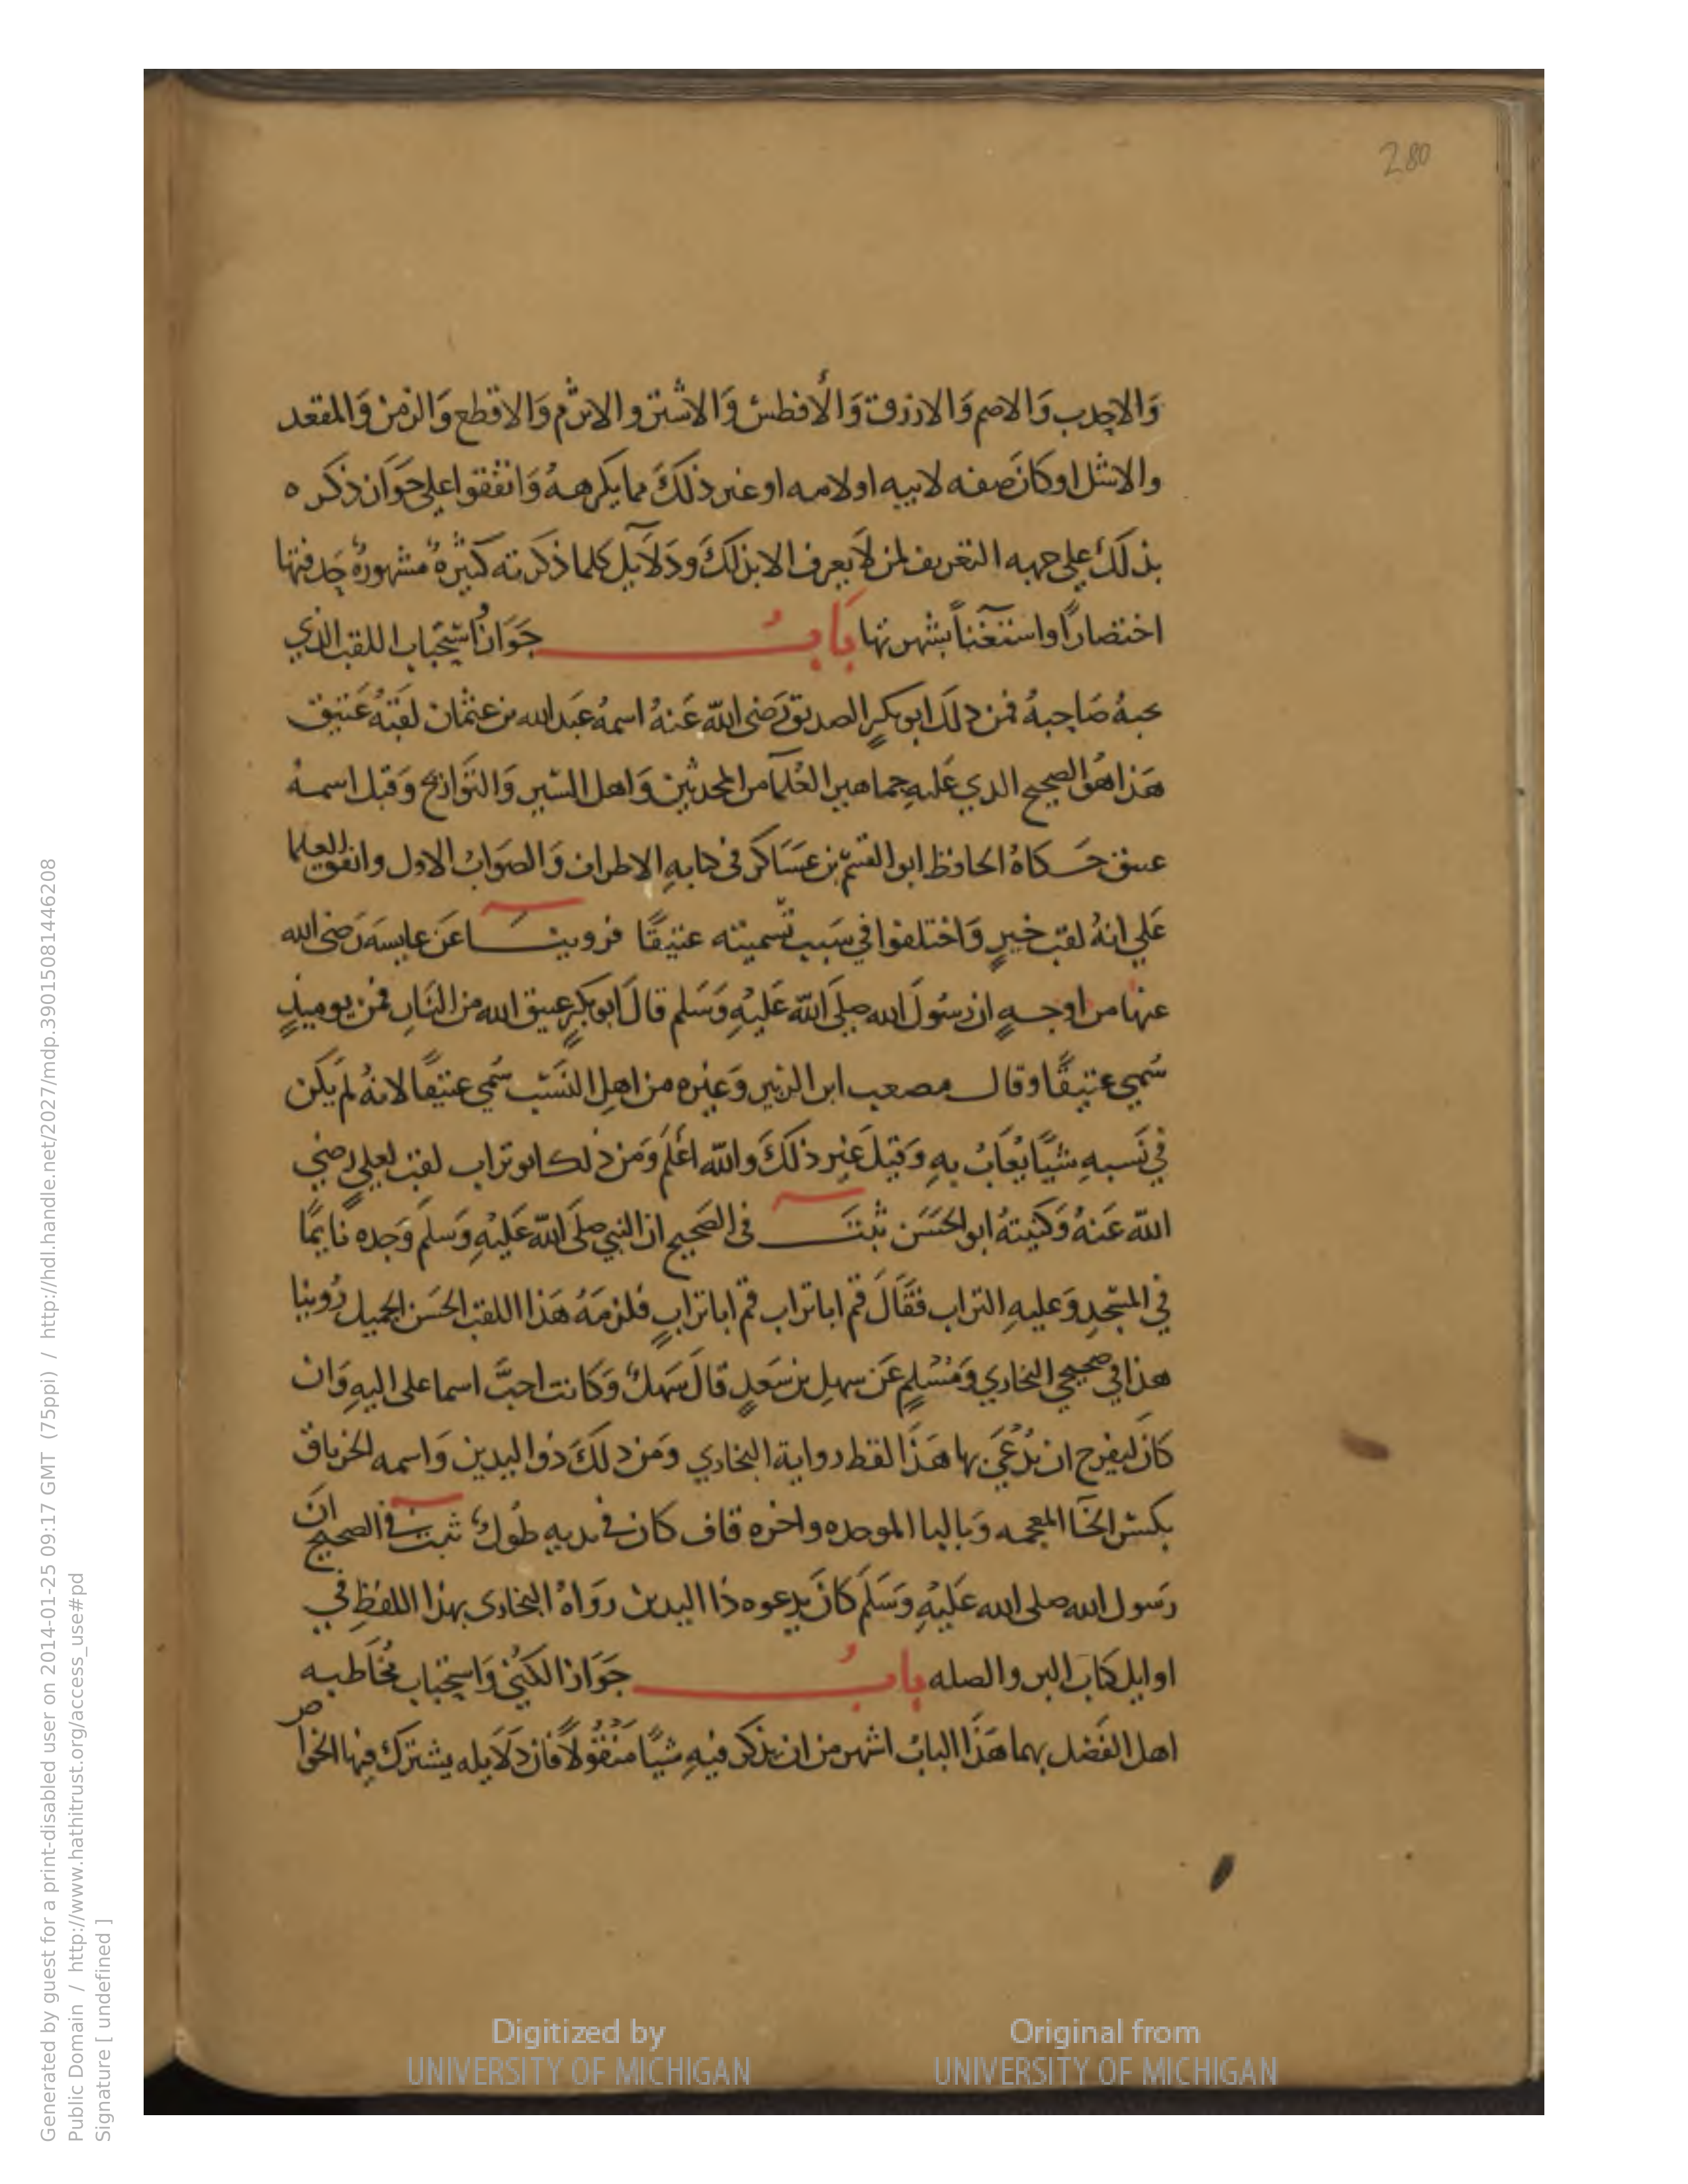 280
وَالاحدب وَالاصم وَالازرق وَالأفطس وَالاشتر والاثرم وَالاقطع وَالزمن وَالمقعد
والاشل او كانَ صفه لابيه او لامه او غير ذلكَ مما يكرهـهُ وَاتفقوا على جَوَاز ذكره
بذلكَ على جهه التعريف لمن لاَ يعرف الا بذلكَ ودَلاَيل كلما ذكرته كثيرةٌ مشهورةٌ حَدفتها
اختصارًا واستغنآً بشهرتها بَابُ جَوَازُ استحباب اللقب الذي
يحبهُ صَاحبهُ فمن دلكَ ابو بكرٍ الصديق رَضى الله عَنهُ اسمهُ عَبَد الله بن عثمان لقبَهُ عَتيق
هَذا هُوَ الصحيح الدي عَليهِ جماهير العُلمآ من المحدثين وَاهل السّير وَالتوَاريخ وَقيل اسمـهُ
عتيق حَـكاهُ الحافظ ابو القسمِ بن عسَاكر فى كتابهِ الاطراف وَالصَوَابُ الاول واتفق العلما
عَلى انهُ لقب خيرٍ وَاختلفوا في سَبب تَّسميته عتيقًا فروينـا عَن عايسه رَضى الله
عنها من اوجـهٍ ان رسُولَ الله صلى الله عَليْهِ وَسَلم قالَ ابو بكرٍ عتيق الله من النَارِ فمن يوميذٍ
سُمي عتيقًا وقال مصعب ابن الزبير وَغيره من اهلِ النسَب سُمي عتيقًا لانهُ لم يكن
في نَسبهِ شيًا يُعَابُ بهِ وَقيلَ غير ذلكَ والله اعْلم وَمن ذلك ابو تراب لقب لعليٍ رضي
الله عَنهُ وَكنيتهُ ابو الحَسَن ثبتَ فى الصَحيح ان النبي صلى الله عَليْهِ وَسلمَ وَجده نايمًا
في المَسْجدِ وَعليهِ التراب فقَالَ قم ابا تراب قم ابا ترابٍ فلزمَهُ هَذا اللقب الحَسَن الجميل رُوينا
هذا في صحيحي البخاري وَمُسْلمٍ عَن سهل بن سَعدٍ قالَ سَهلٌ وَكانت احبَّ اسما على اليهِ وَان
كاَن ليفرح ان يُدْعَي بها هَذَا لفظ رواية البخاري وَمن دلكَ ذوا اليدين وَاسمه الخرباق
بكسر الخآ المعجمه وَباليا الموحده واخره قاف كان في يديهِ طُولٌ ثبت في الصحيح انَ
رَسول الله صلى الله عَليْهِ وَسَلم كانَ يدعوه ذا اليدين روَاهُ البخارى بهذا اللفظِ في
اوايل كتَاب البر والصله بابُ جَوَاز الكنَى وَاستحباب مخَاطبـه
اهل الفَضل بهما هَذَا البابُ اشهر من ان يذكر فيهِ شيًا منْقُولاً فان دَلاَيله يشترك فيها الخوَاص
Digitized by
UNIVERSITY OF MICHIGAN
Original from
UNIVERSITY OF MICHIGAN
Generated by guest for a print-disabled user on 2014-01-25 09:17 GMT (75ppi) / http://hdl.handle.net/2027/mdp.39015081446208
Public Domain / http://www.hathitrust.org/access_use#pd
Signature [ undefined ]